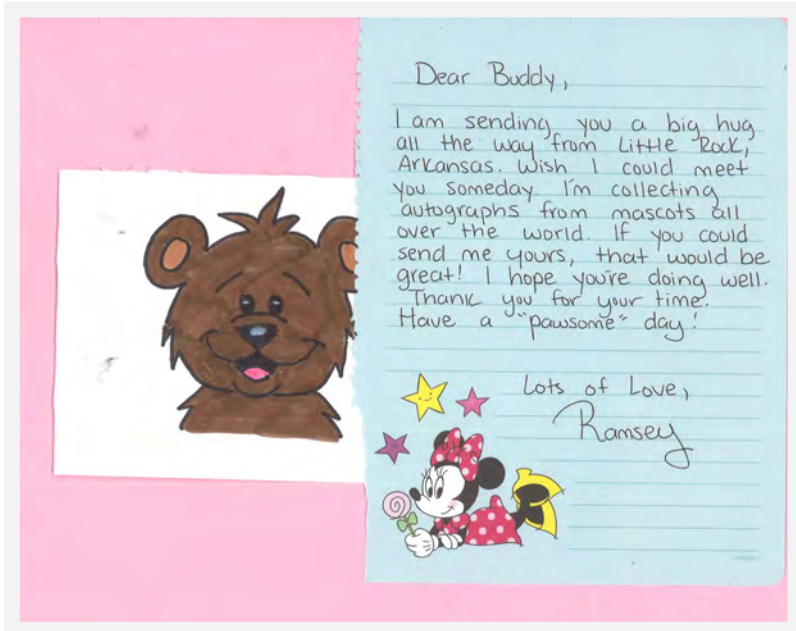 Dear Buddy,
I am sending you a big hug
all the way from Little Rock,
Arkansas. Wish I could meet
you someday. I'm collecting
autographs from mascots all
over the world. If you could
send me yours, that would be
great! I hope you're doing well.
Thank you for your time.
Have a "pawsome" day!
Lots of Love,
Ramsey